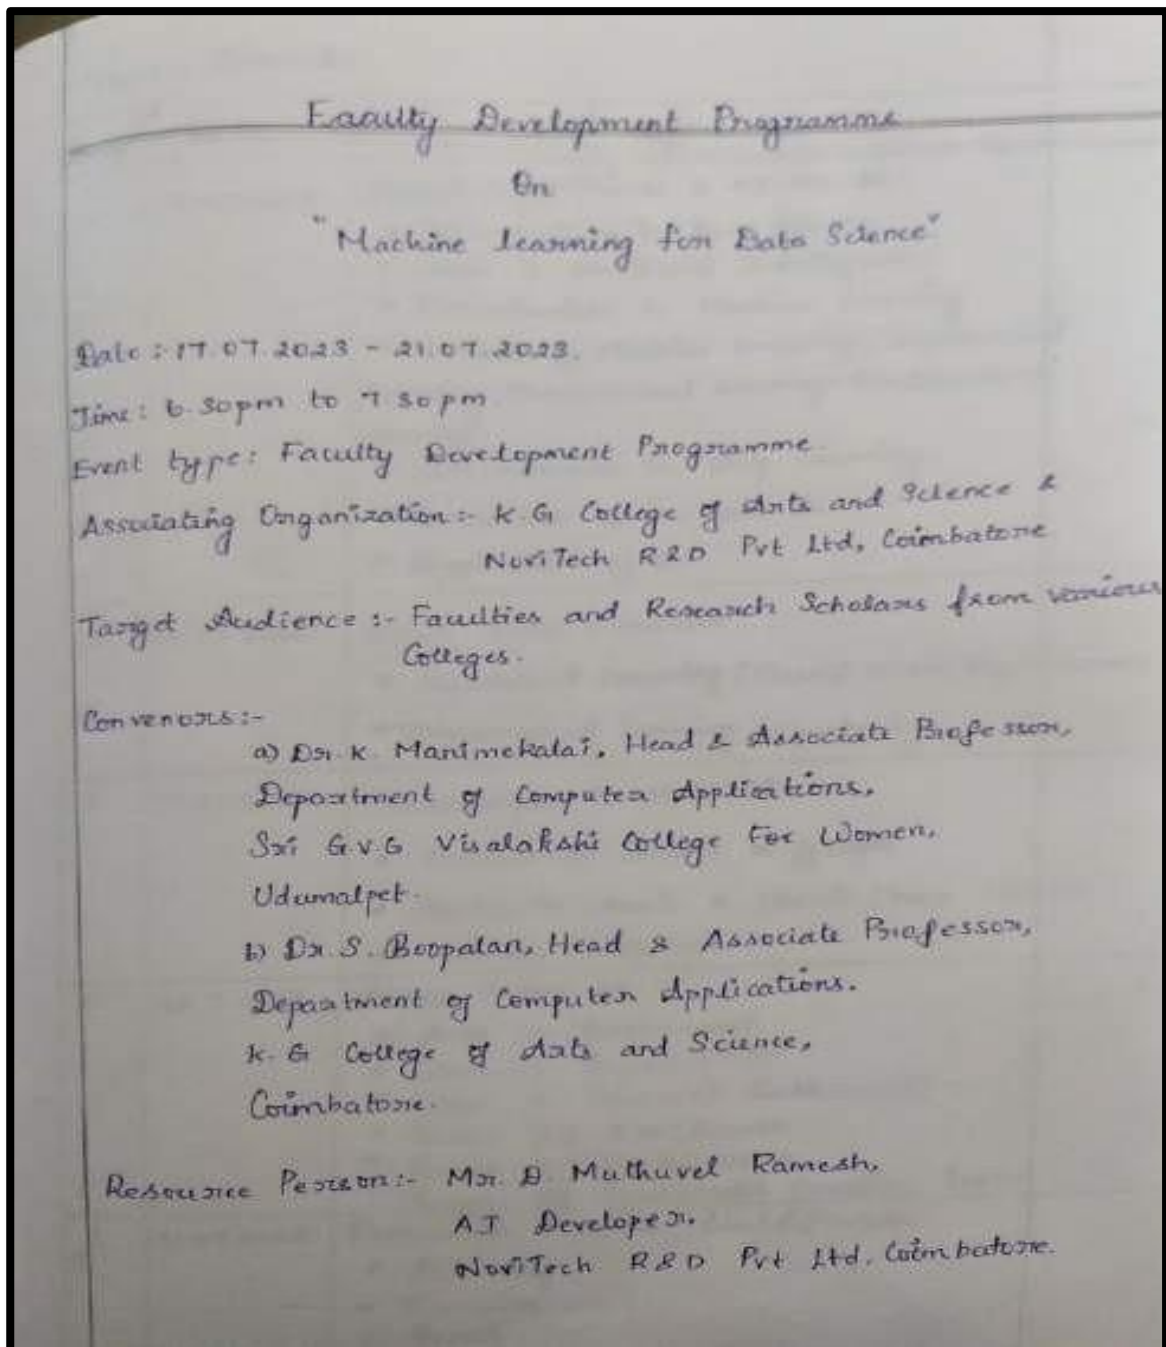 Faculty Development Programme
On
"Machine learning for Data Science"
Date : 17.07.2023 - 21.07.2023.
Time : 6.30pm to 7.30pm
Event type : Faculty Development Programme.
Associating Organization :- K.G College of Arts and Science &
NoviTech R&D Pvt Ltd, Coimbatore
Target Audience :- Faculties and Research Scholars from various
Colleges.
Convenors :-
a) Dr. K. Manimekalai, Head & Associate Professor,
Department of Computer Applications,
Sri G.V.G Visalakshi College For Women,
Udumalpet.
b) Dr. S. Boopalan, Head & Associate Professor,
Department of Computer Applications.
K.G College of Arts and Science,
Coimbatore.
Resource Person :- Mr. D. Muthuvel Ramesh,
A.I Developer.
NoviTech R&D Pvt Ltd. Coimbatore.